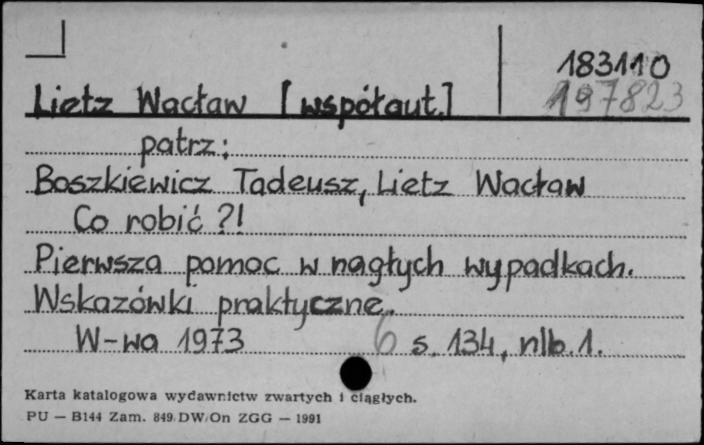 183110
197823
Lietz Wacław [współaut.]
patrz:
Boszkiewicz Tadeusz, Lietz Wacław
Co robić?!
Pierwsza pomoc w nagłych wypadkach.
Wskazówki praktyczne.
W-wa 1973 6 s. 134, nlb. 1.
Karta katalogowa wydawnictw zwartych i ciągłych.
PU — B144 Zam. 849.DW/On ZGG — 1991